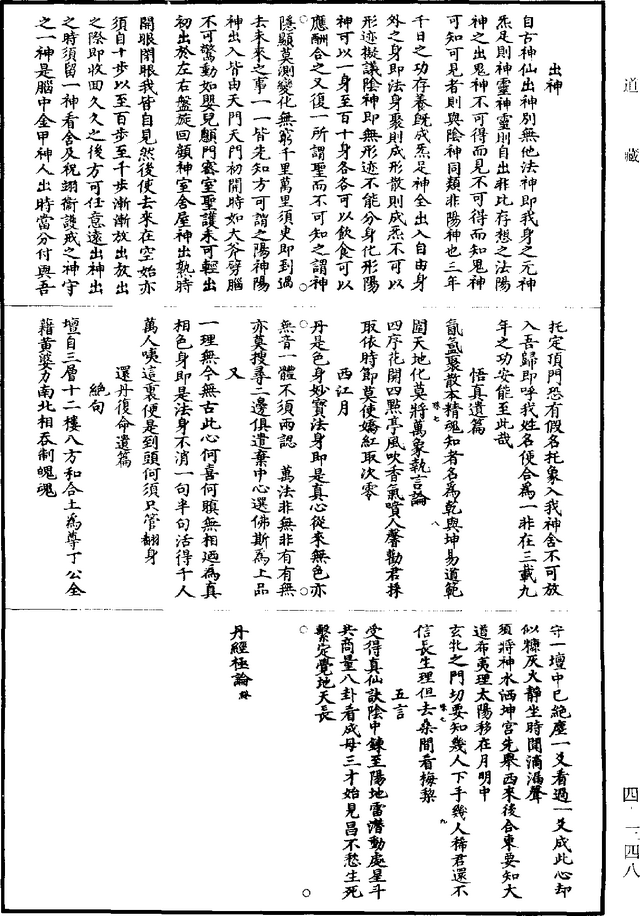 道藏
出神
自古神仙出神別無他法神即我身之元神
炁足則神靈神靈則自出非比存想之法陽
神之出鬼神不可得而見不可得而知鬼神
可知可見者則與陰神同類非陽神也三年
千日之功存養既成炁足神全出入自由身
外之身即法身聚則成形散則成炁不可以
形迹擬議陰神即無形迹不能分身化形陽
神可以一身至百十身各各可以飲食可以
應酬合之又復一所謂聖而不可知之謂神
隱顯莫測變化無窮千里萬里須臾即到過
去未來之事一一皆先知方可謂之陽神陽
神出入皆由天門天門初開時如大斧劈腦
不可驚動如嬰兒顖門密室聖護未可輕出
初出於左右盤旋回顧神室舍屋神出熟時
開眼閉眼我皆自見然後使去來在空始亦
須自十步以至百步至千步漸漸放出放出
之際即收回久久之後方可任意遠出神出
之時須留一神看舍及祝翊衛護戒之神守
之一神是腦中金甲神人出時當分付與吾
托定頂門恐有假名托象入我神舍不可放
入吾歸即呼我姓名便合為一非在三載九
年之功安能至此哉
悟真遺篇
氤氳聚散本精魂知者名為乾與坤易道範
圍天地化莫將萬象執言論
四序花開四點亭風吹香氣噴人馨勸君採
取依時節莫使嬌紅取次零
西江月
丹是色身妙寶法身即是真心從來無色亦
無音一體不須兩認 萬法非無非有有無
亦莫搜尋二邊俱遣棄中心選佛斯為上品
又
一理無今無古此心何喜何瞋無相迺為真
相色身即是法身不消一句半句活得千人
萬人咦這裏便是到頭何須只管翻身
還丹復命遺篇
絕句
壇自三層十二樓八方和合土為尊丁公全
藉黃婆力南北相吞制魄魂
守一壇中已絕塵一爻看過一爻成此心却
似糠灰火靜坐時聞滴漏聲
須將神水洒坤宮先舉西來後合東要知大
道希夷理太陽移在月明中
玄牝之門切要知幾人下手幾人稀君還不
信長生理但去桑間看梅梨
五言
受得真仙訣陰中鍊至陽地雷潛動處星斗
共商量八卦看成母三才始見昌不愁生死
繫定覺地天長
丹經極論
四·一·四八